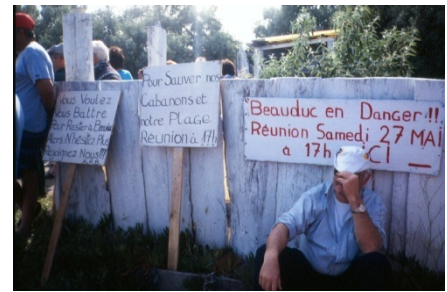 Vous Voulez
Vous Battre
Pour Rester à Beauduc
Alors N'hésitez Plus
Rejoignez Nous!!!
Pour Sauver nos
Cabanons et
notre Plage
Réunion à 17h
Beauduc en Danger!!
Réunion Samedi 27 MAI
à 17h ICI